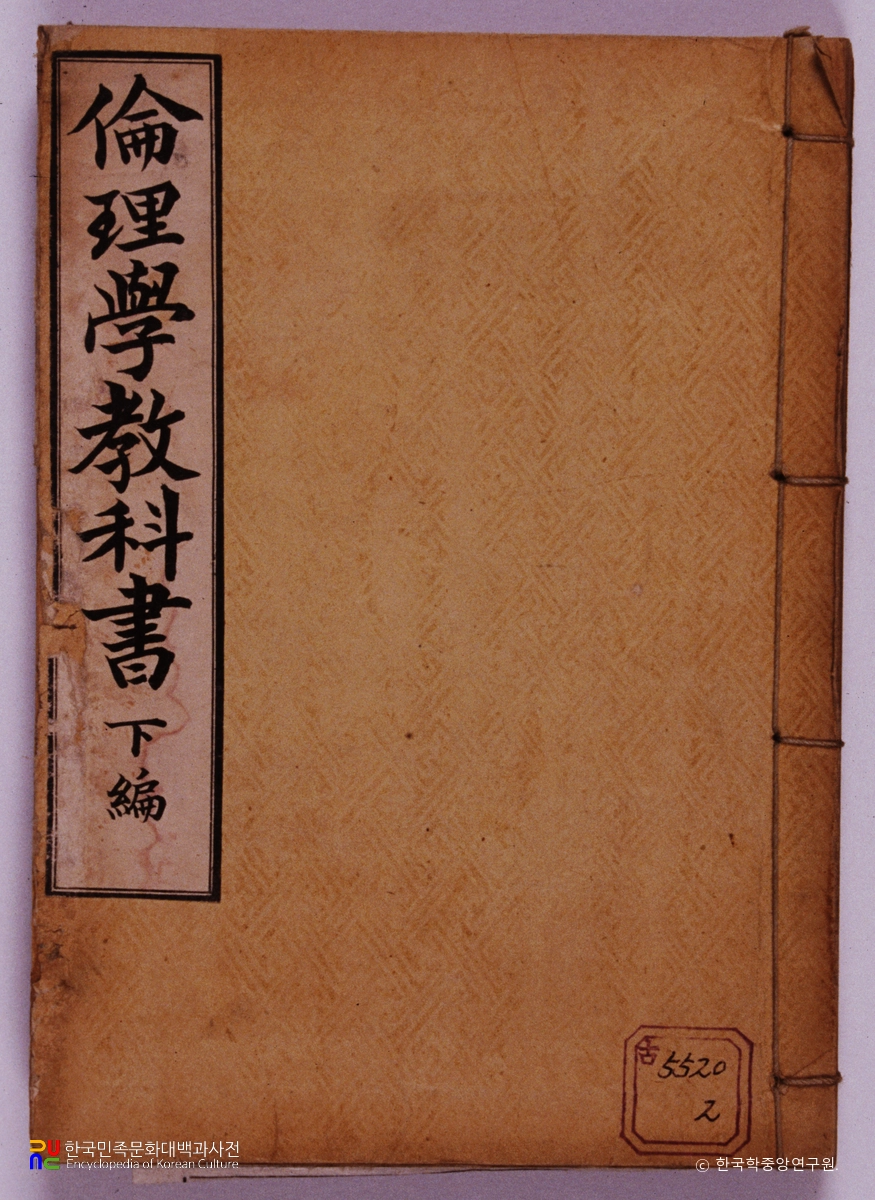 倫理學教科書 下編
5520
2
한국민족문화대백과사전
Encyclopedia of Korean Culture
© 한국학중앙연구원